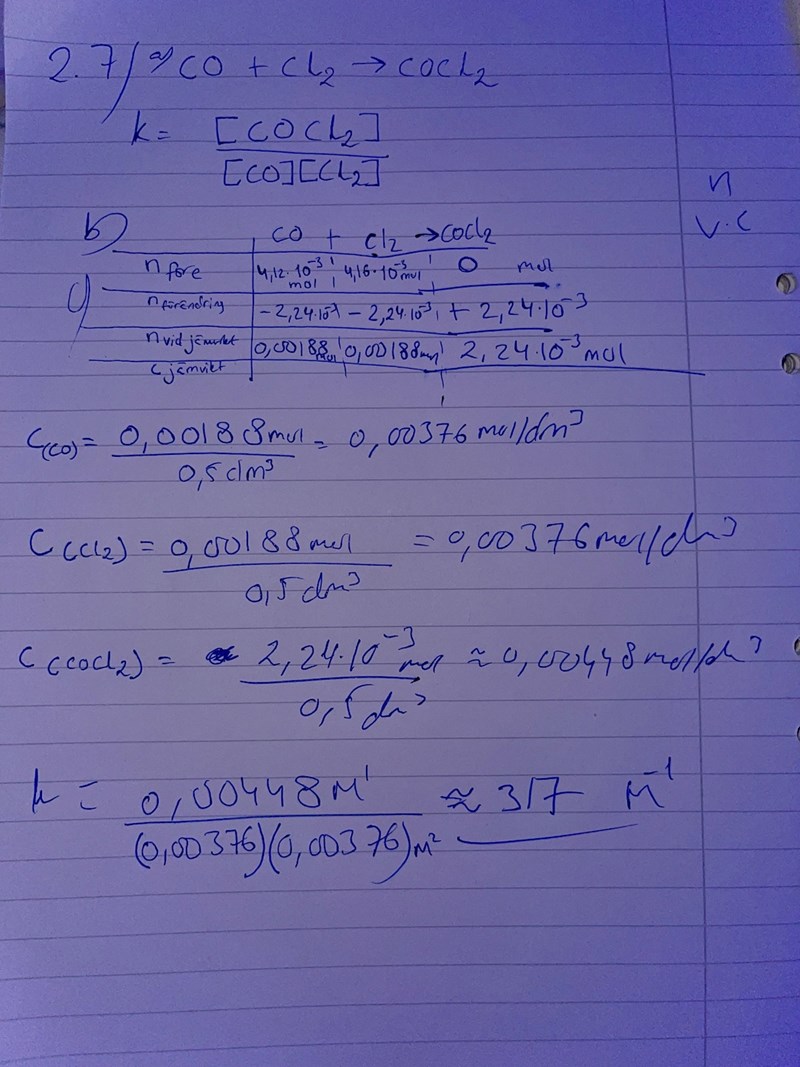 2.7/ a) CO + Cl₂ → COCl₂
k = [COCl₂]
[CO][Cl₂]
n
V·C
b) CO + Cl₂ → COCl₂
n före 4,12·10⁻³ mol 4,16·10⁻³ mol 0 mol
c) n förändring -2,24·10⁻³ -2,24·10⁻³ + 2,24·10⁻³
n vid jämvikt 0,00188mol 0,00188mol 2,24·10⁻³ mol
C jämvikt
C(CO) = 0,00188mol = 0,00376 mol/dm³
0,5dm³
C(Cl₂) = 0,00188mol = 0,00376mol/dm³
0,5dm³
C(COCl₂) = 2,24·10⁻³ mol ≈ 0,00448mol/dm³
0,5dm³
k = 0,00448M¹ ≈ 317 M⁻¹
(0,00376)(0,00376)M²